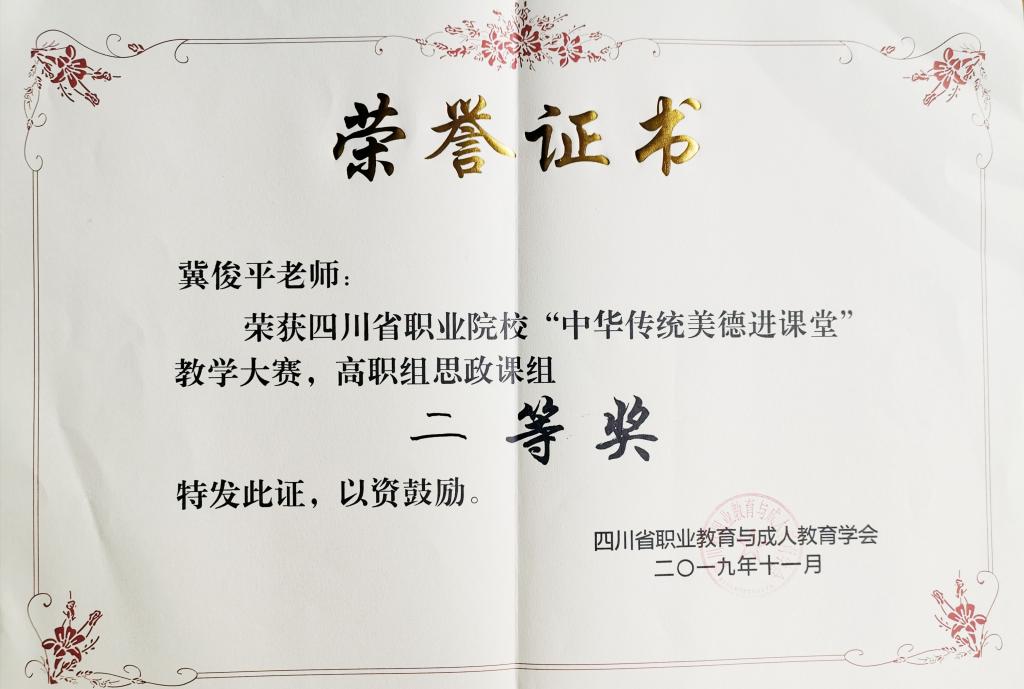 荣誉证书
冀俊平老师：
荣获四川省职业院校“中华传统美德进课堂”
教学大赛，高职组思政课组
二等奖
特发此证，以资鼓励。
四川省职业教育与成人教育学会
二〇一九年十一月